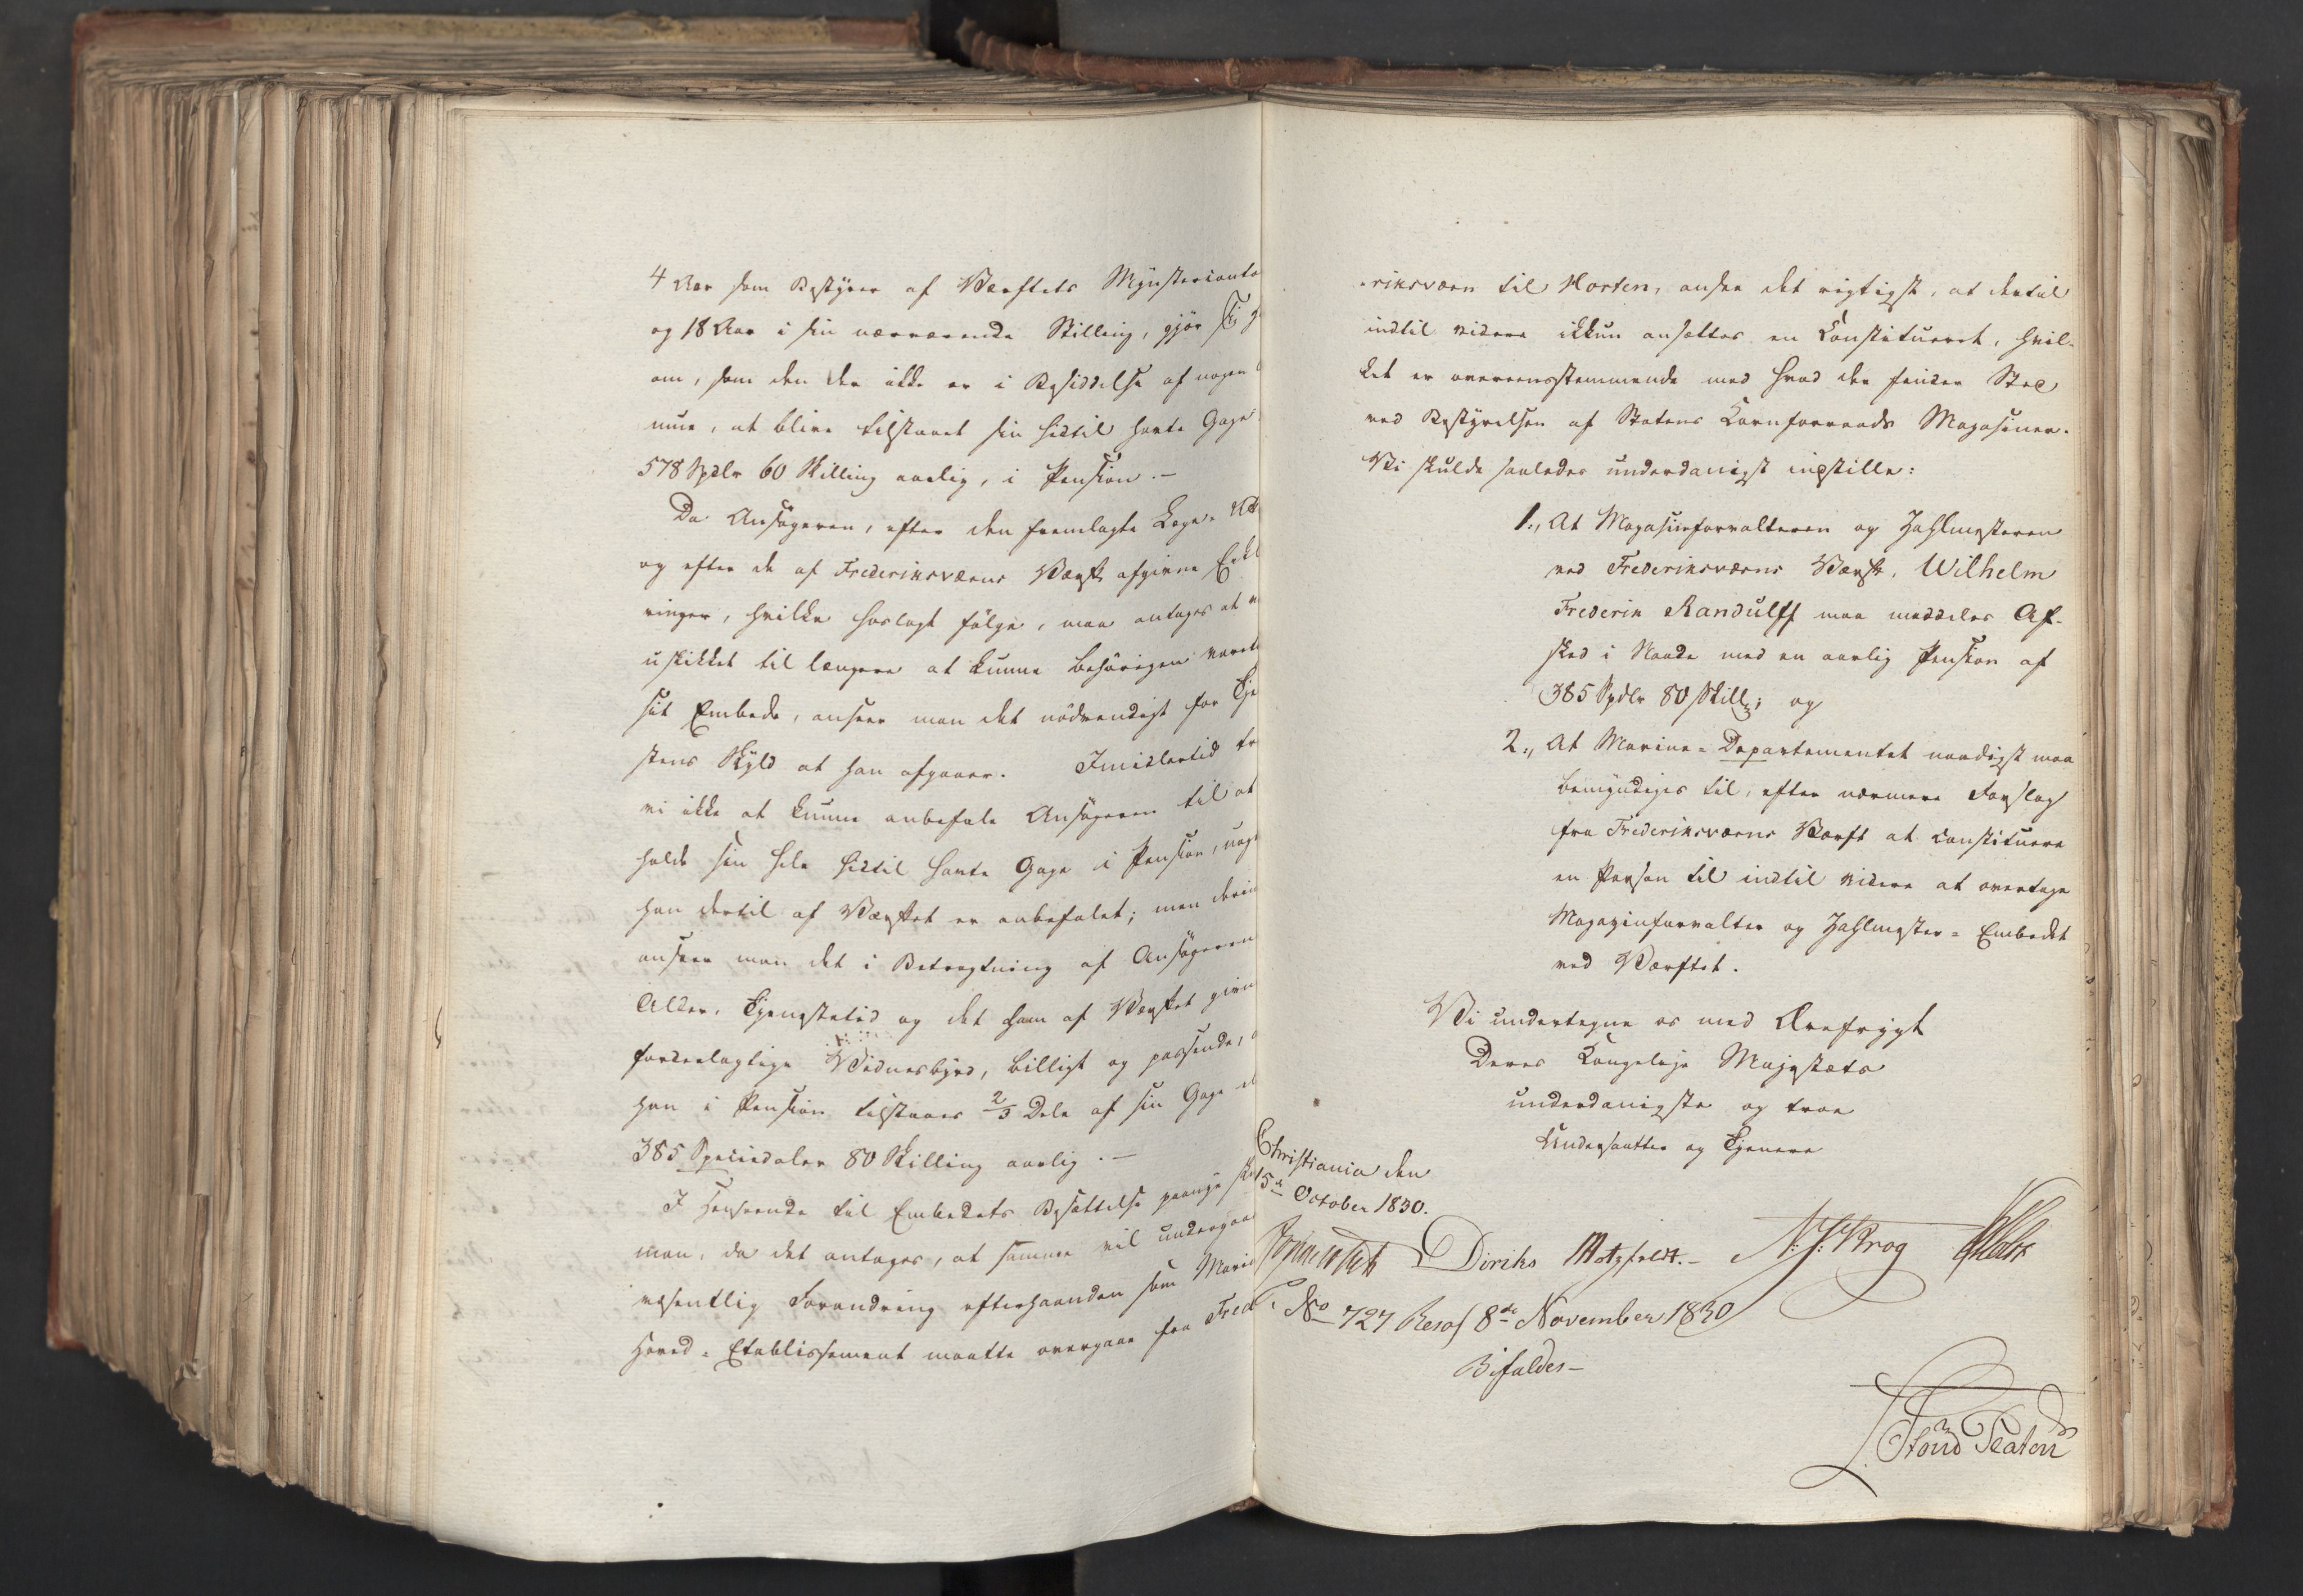 4 Aar som Bestyrer af Værftets Mynsterconto
og 18 Aar i sin nærværende Stilling, gjør sig
om, som den der ikke er i Besiddelse af nogen
mue, at blive tilstaaet sin hidtil havte Gage
578 Spdlr 60 Skilling aarlig, i Pension. —
Da Ansøgeren, efter den fremlagte Læge-
og efter de af Frederiksværns Værft afgivne Erkl
ringer, hvilke hoslagt følge, maa antages at
uskikket til længere at kunne behørigen
sit Embede, anseer man det nødvendigt for Tje
stens Skyld at han afgaaer. Imidlertid tr
vi ikke at kunne anbefale Ansøgeren til at
holde sin hele hidtil havte Gage i Pension,
han dertil af Værftet er anbefalet; men
anseer man det i Betragtning af Ansøgeren
Alder, Tjenestetid og det ham af Værftet givn
fordeelagtige Vidnesbyrd, billigt og passende,
han i Pension tilstaaes 2/3 Dele af sin Gage
385 Speciedaler 80 Skilling aarlig. —
I Henseende til Embedets Besættelse
man, da det antages, at samme vil undergaae
væsentlig Forandring efterhaanden som Marin
Hoved-Etablissement maatte overgaae fra Fred
riksværn til Horten, ansee det rigtigst, at dertil
indtil videre ikkun ansættes en Constitueret, hvil-
ket er overensstemmende med hvad der finder Sted
ved Bestyrelsen af Statens Kornforraads Magasiner.
Vi skulde saaledes underdanigst indstille:
1., At Magasinforvalteren og Zahlmesteren
ved Frederiksværns Værft, Wilhelm
Frederik Randulff maa meddeles Af-
sked i Naade med en aarlig Pension af
385 Spdlr 80 Skill; og
2., At Marine-Departementet naadigst maa
bemyndiges til, efter nærmere Forslag
fra Frederiksværns Værft at constituere
en Person til indtil videre at overtage
Magazinforvalter og Zahlmester-Embedet
ved Værftet.
Vi undertegne os med Ærefrygt
Deres Kongelige Majestæts
underdanigste og troe
Undersaatter og Tjenere
Christiania den
15de October 1830.
Diriks Motzfeldt. N. J. Krog Holst
No 727 Resol 8de November 1830
Bifaldes —